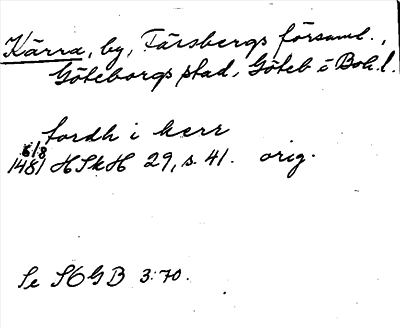 Kärra, by, Färsbergs församl.,
Göteborgs stad, Göteb o Boh. l.
tordh i kerr
6/8
1481 HSkH 29, s. 41. orig.
Se SOGB 3:70.